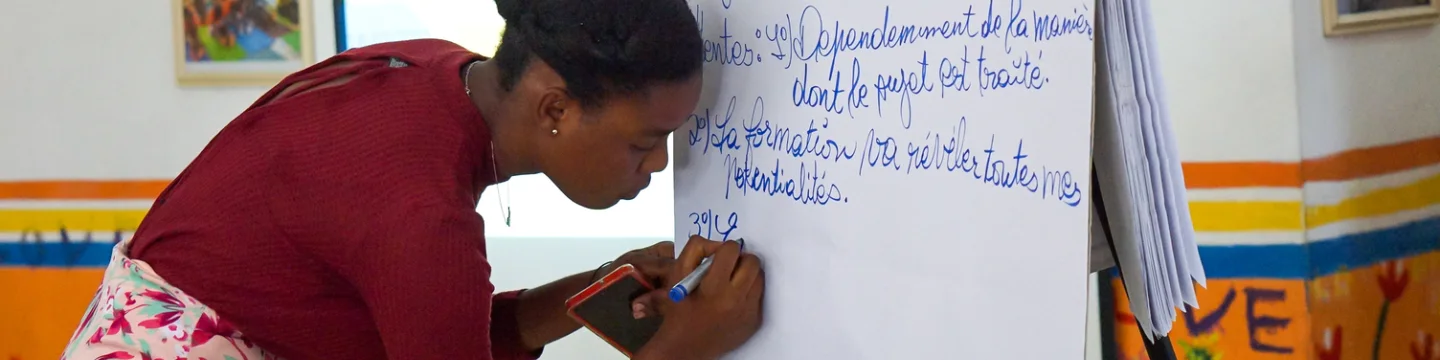 ttentes: 1°) Dépendemment de la manière
dont le sujet est traîté.
2°) La formation va révéler toutes mes
potentialités.
3°)